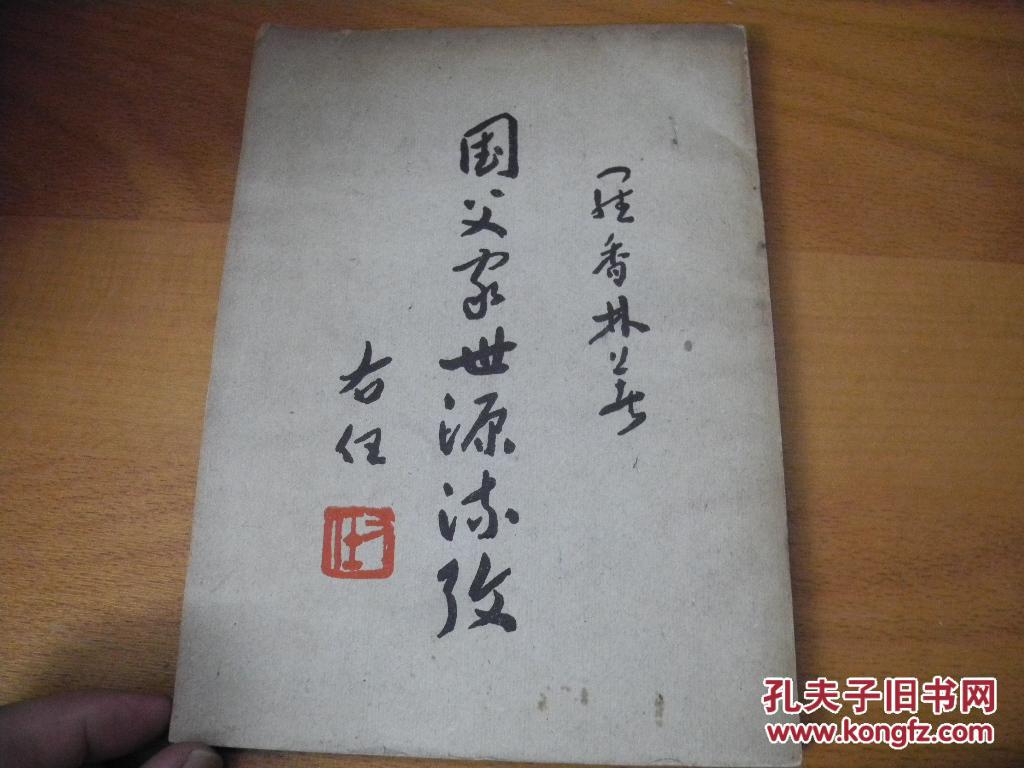 羅香林著
国父家世源流攷
右任
孔夫子旧书网
www.kongfz.com